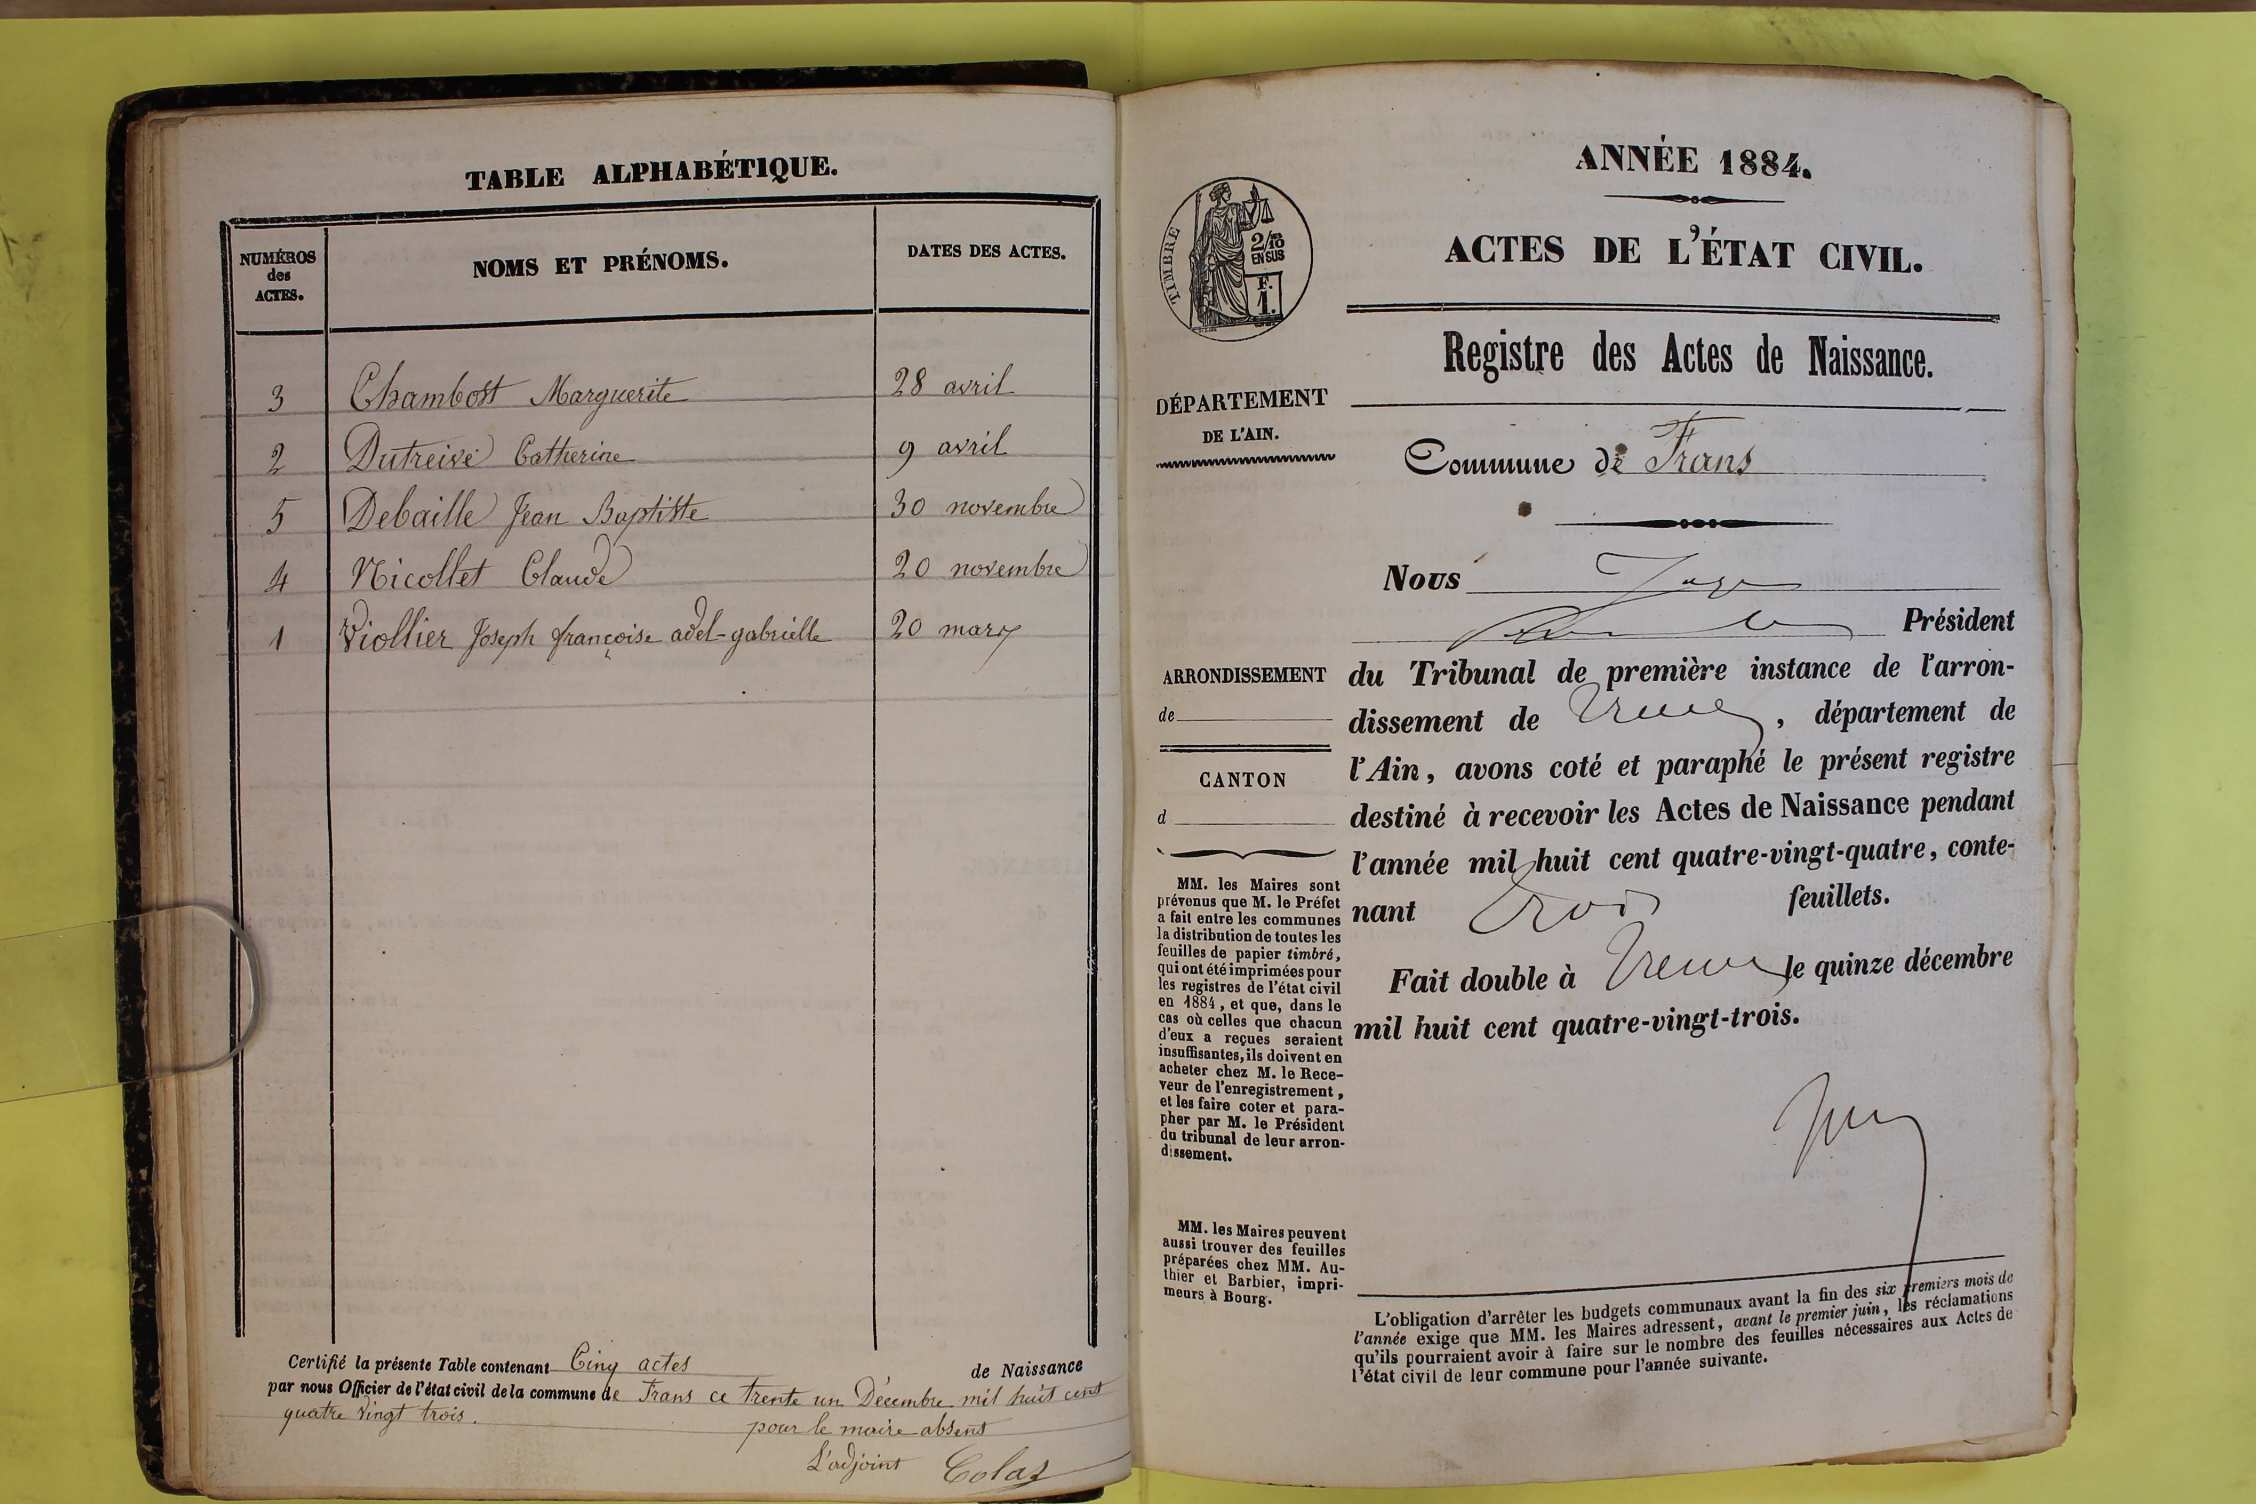 TABLE ALPHABÉTIQUE.
NUMÉROS
des
ACTES.
NOMS ET PRÉNOMS.
DATES DES ACTES.
3 Chambost Marguerite 28 avril
2 Dutreive Catherine 9 avril
5 Debaille Jean Baptiste 30 novembre
4 Nicollet Claude 20 novembre
1 Viollier Joseph françoise adel-gabrielle 20 mars
Certifié la présente Table contenant Cinq actes de Naissance
par nous Officier de l'état civil de la commune de Frans ce trente un Décembre mil huit cent
quatre vingt trois.
pour le maire absent
L'adjoint Colas
ANNÉE 1884.
ACTES DE L'ÉTAT CIVIL.
TIMBRE
2/10
EN SUS
F.
1.
Registre des Actes de Naissance.
DÉPARTEMENT
DE L'AIN.
Commune de Frans
Nous
Président
ARRONDISSEMENT
de
CANTON
d
du Tribunal de première instance de l'arron-
dissement de Trévoux, département de
l'Ain, avons coté et paraphé le présent registre
destiné à recevoir les Actes de Naissance pendant
l'année mil huit cent quatre-vingt-quatre, conte-
nant trois feuillets.
Fait double à Trévoux le quinze décembre
mil huit cent quatre-vingt-trois.
MM. les Maires sont
prévenus que M. le Préfet
a fait entre les communes
la distribution de toutes les
feuilles de papier timbré,
qui ont été imprimées pour
les registres de l'état civil
en 1884, et que, dans le
cas où celles que chacun
d'eux a reçues seraient
insuffisantes, ils doivent en
acheter chez M. le Rece-
veur de l'enregistrement,
et les faire coter et para-
pher par M. le Président
du tribunal de leur arron-
dissement.
MM. les Maires peuvent
aussi trouver des feuilles
préparées chez MM. Au-
thier et Barbier, impri-
meurs à Bourg.
L'obligation d'arrêter les budgets communaux avant la fin des six premiers mois de
l'année exige que MM. les Maires adressent, avant le premier juin, les réclamations
qu'ils pourraient avoir à faire sur le nombre des feuilles nécessaires aux Actes de
l'état civil de leur commune pour l'année suivante.